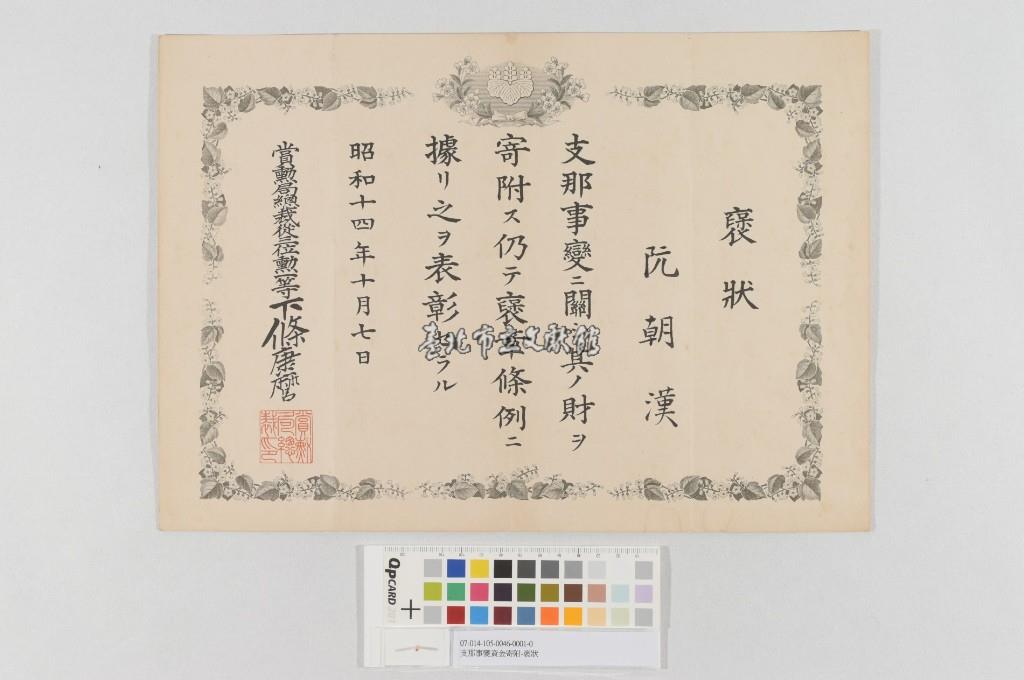 褒狀
阮朝漢
支那事變ニ關シ其ノ財ヲ
寄附ス仍テ褒章條例ニ
據リ之ヲ表彰セラル
昭和十四年十月七日
賞勲局總裁從三位勲一等下條康麿
賞勲局總裁印
臺北市立文獻館
QPCARD 201
07-014-105-0046-0001-0
支那事變資金寄附-褒狀